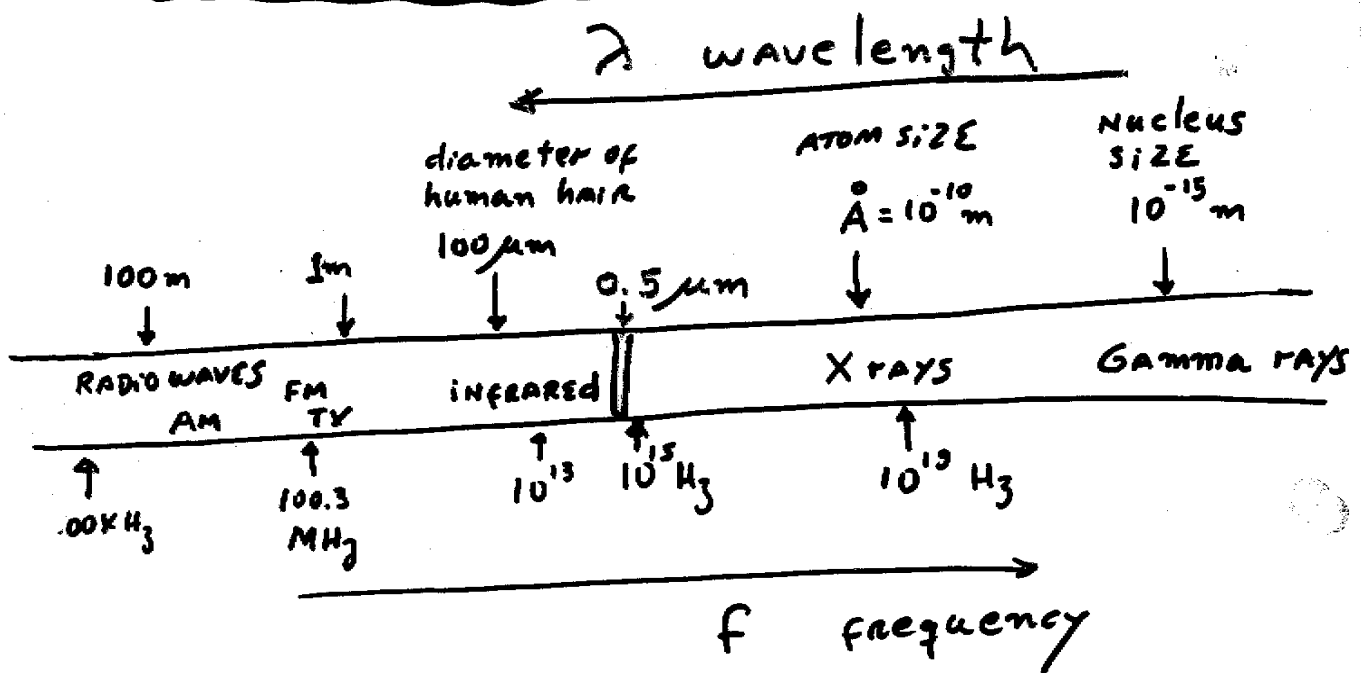 λ wavelength
diameter of
human hair
100 μm
ATOM SIZE
Å = 10⁻¹⁰ m
Nucleus
SIZE
10⁻¹⁵ m
100 m
1m
0.5 μm
RADIO WAVES
AM
FM
TV
INFRARED
X rays
Gamma rays
.00KHz
100.3
MHz
10¹³
10¹⁵ Hz
10¹⁹ Hz
f frequency